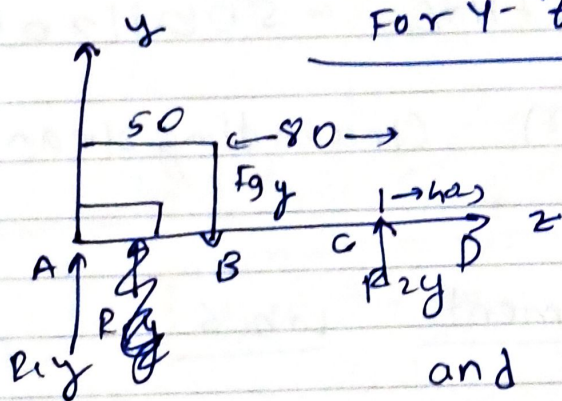 For Y-
y
50 ←80→
Fgy
→40→
A B C D z
R2y
R1y R
and